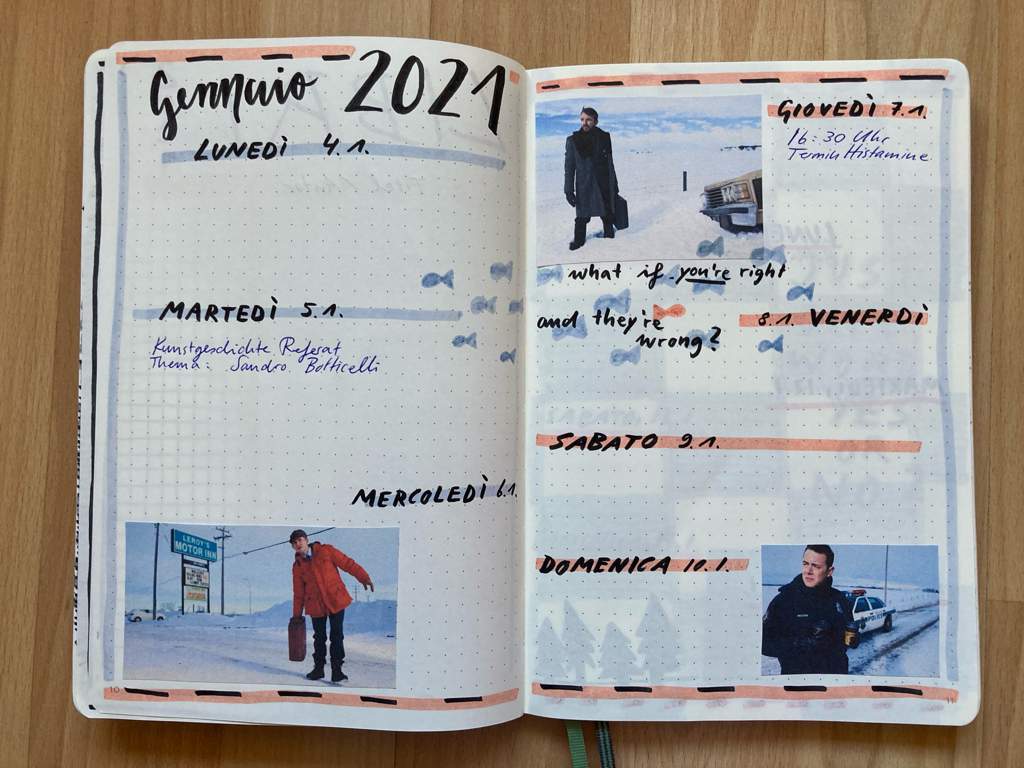 Gennaio 2021
LUNEDÌ 4.1.
MARTEDÌ 5.1.
Kunstgeschichte Referat
Thema: Sandro Botticelli
MERCOLEDÌ 6.1.
LEROY'S
MOTOR INN
10
GIOVEDÌ 7.1.
16:30 Uhr
Termin Histamine
what if you're right
and they're
wrong?
8.1. VENERDÌ
SABATO 9.1.
DOMENICA 10.1.
POLICE
11